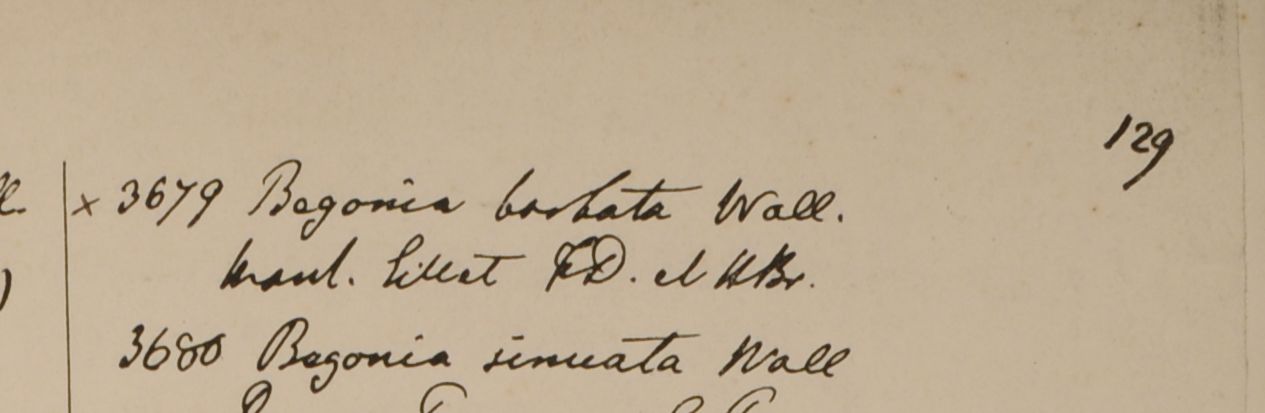 129
x 3679 Begonia barbata Wall.
Mont. Sillet FD. et HBr.
3680 Begonia sinuata Wall